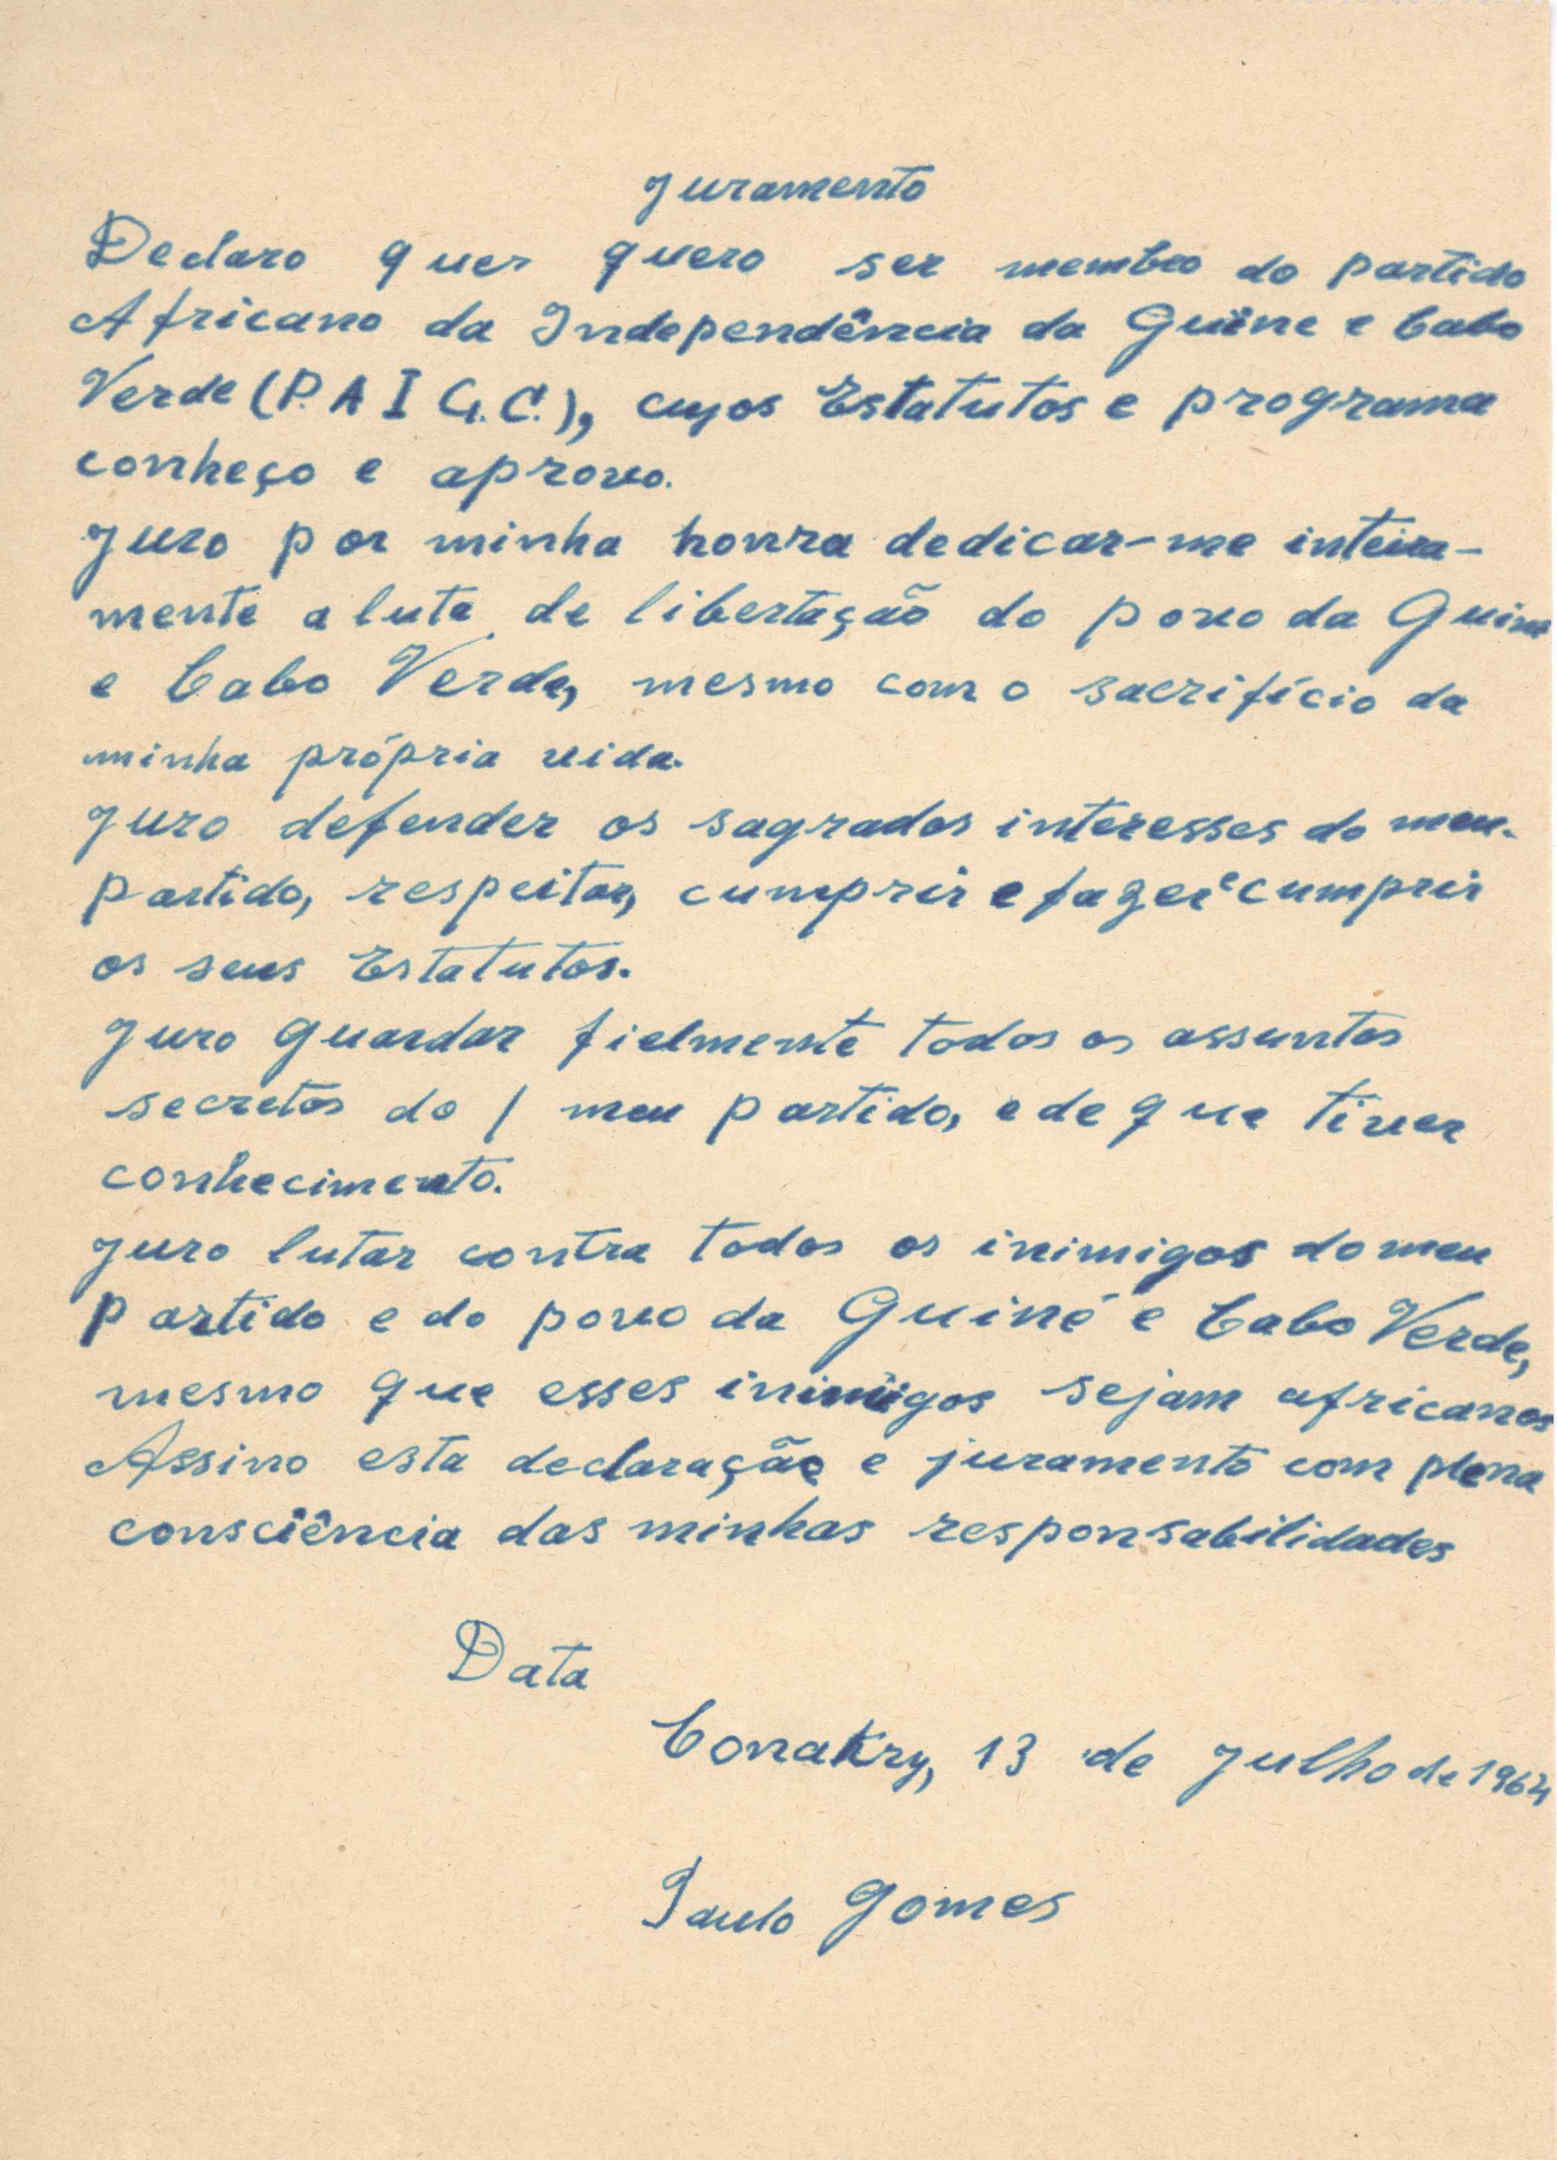 Juramento
Declaro que quero ser membro do partido
Africano da Independência da Guine e Cabo
Verde (P.A I G.C.), cujos Estatutos e programa
conheço e aprovo.
Juro por minha honra dedicar-me inteira-
mente a luta de libertação do povo da Guine
e Cabo Verde, mesmo com o sacrifício da
minha própria vida.
Juro defender os sagrados interesses do meu
partido, respeitar, cumprir e fazer cumprir
os seus Estatutos.
Juro guardar fielmente todos os assuntos
secretos do / meu partido, e de que tiver
conhecimento.
Juro lutar contra todos os inimigos do meu
partido e do povo da Guiné e Cabo Verde,
mesmo que esses inimigos sejam africanos
Assino esta declaração e juramento com plena
consciência das minhas responsabilidades
Data
Conakry, 13 de Julho de 1964
Paulo Gomes